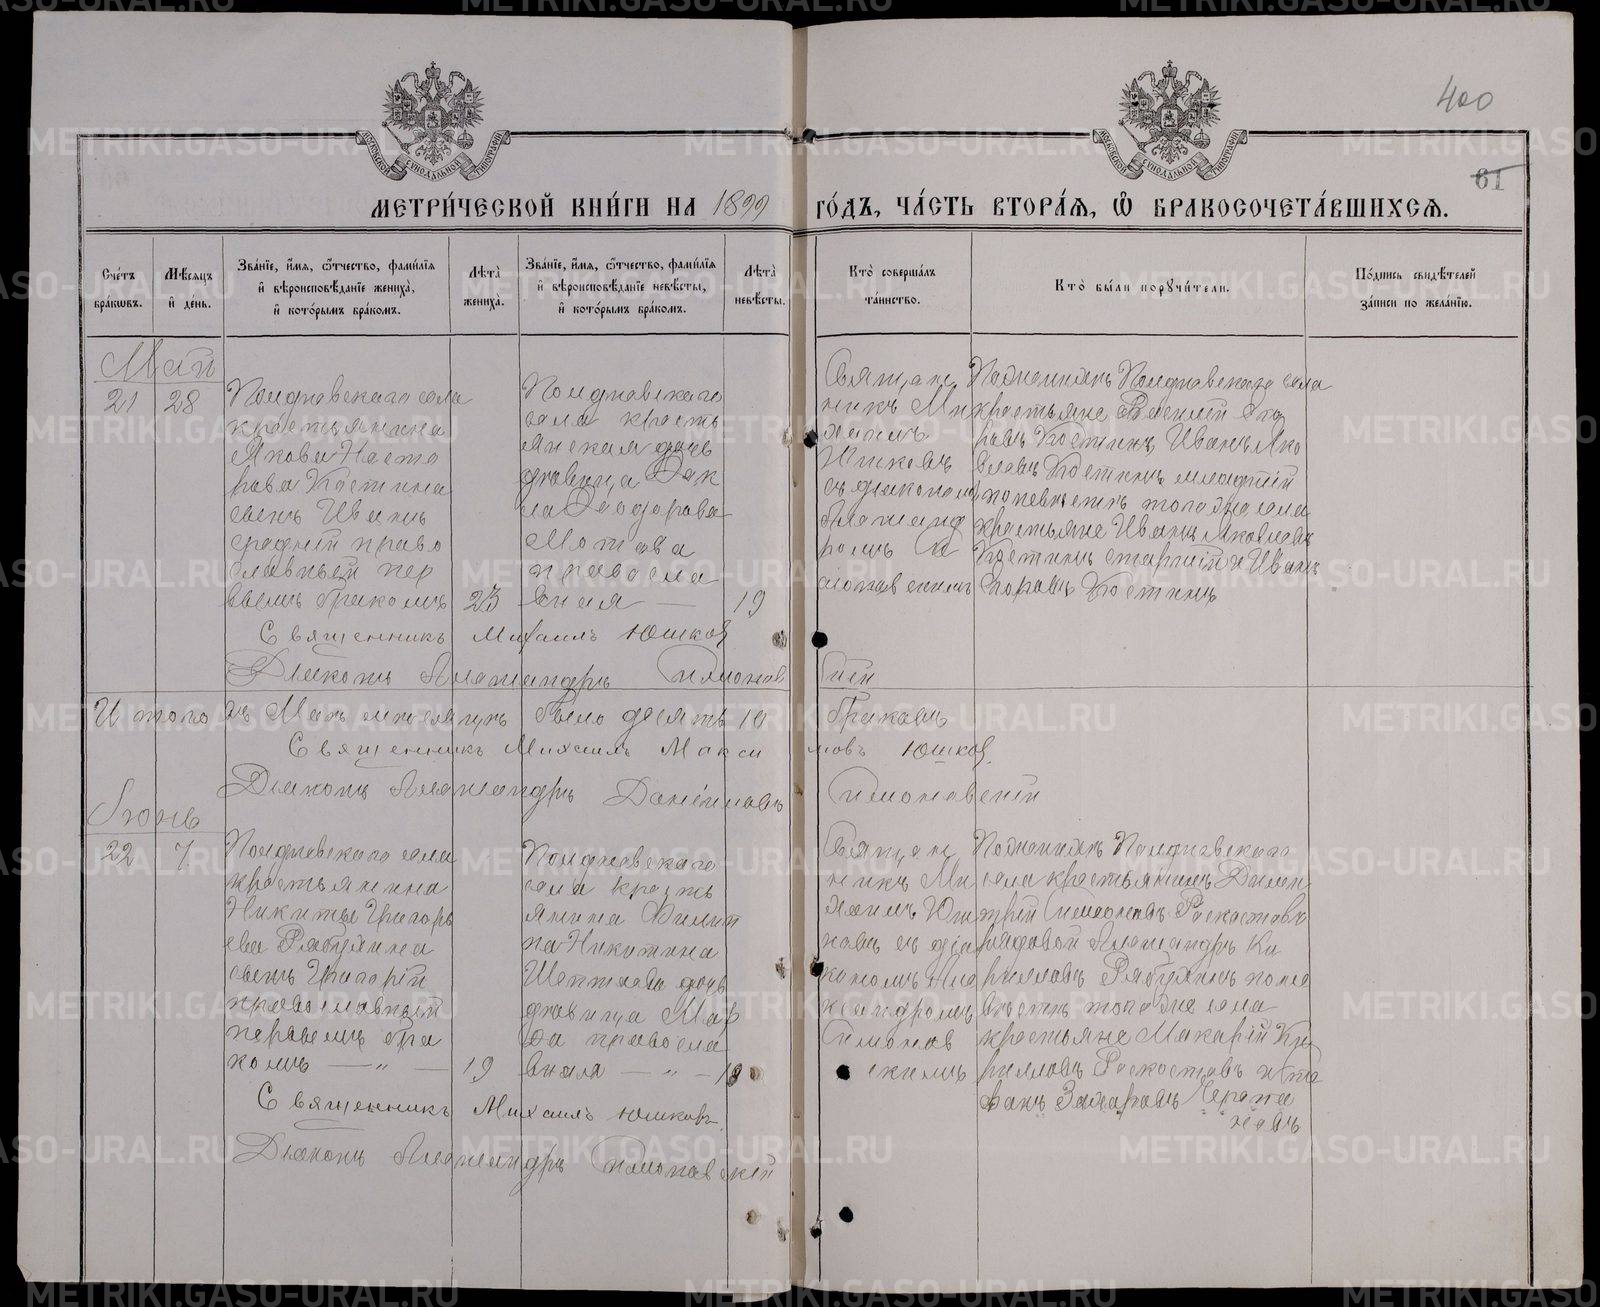 400
61
МЕТРИ́ЧЕСКОЙ КНИ́ГИ НА 1899 ГО́ДЪ, ЧА́СТЬ ВТОРА́Ѧ, Ѡ҆ БРАКОСОЧЕТА́ВШИХСѦ.
Сче́тъ бра́кѡвъ.
Мѣ́сѧцъ и҆ де́нь.
Зва́нїе, и҆́мѧ, ѻ҆́тчество, фами́лїѧ и҆ вѣроисповѣ́данїе жениха̀, и҆ кото́рымъ бра́комъ.
Лѣ́та жениха̀.
Зва́нїе, и҆́мѧ, ѻ҆́тчество, фами́лїѧ и҆ вѣроисповѣ́данїе невѣ́сты, и҆ кото́рымъ бра́комъ.
Лѣ́та невѣ́сты.
Кто̀ соверша́лъ та́инство.
Кто̀ бы́ли порꙋчи́тели.
По́дпись свидѣ́телей за́писи по жела́нїю.
Май
21
28
Полдневскаго села
крестьянина
Якова
Костина
сынъ Иванъ
средній право
славный пер
вымъ бракомъ
23
Полдневскаго
села кресть
янская дочь
девица
Ѳеодорова
православ
вная —
19
Священ
никъ Ми
хаилъ
Юшковъ
съ діакономъ
Александ
ромъ Си
моновскимъ
По женихѣ Полдневскаго села
крестьяне Василій Его
ровъ Костинъ Иванъ Яко
влевъ Костинъ младшій
по невѣстѣ того же села
крестьяне Иванъ Яковлевъ
Костинъ старшій и Иванъ
Егоровъ Костинъ
Священникъ Михаилъ Юшковъ
Діаконъ Александръ Симоновскій
Итого въ Маѣ мѣсяцѣ было десять 10 браковъ
Священникъ Михаилъ Максимовъ Юшковъ.
Діаконъ Александръ Даніиловъ Симоновскій
Іюнь
22
7.
Полдневскаго села
крестьянина
Никиты Григорь
ева
сынъ Григорій
православный
первымъ бра
комъ — " —
19
Полдневскаго
села кресть
янина Филип
па Никитина
дочь
девица Мар
ѳа правосла
вная — " —
18
Священ
никъ Ми
хаилъ Юш
ковъ съ діа
кономъ Але
ксандромъ
Симонов
скимъ
По женихѣ Полдневскаго
села крестьянинъ Дими
трій Симоновъ
рядовой Александръ Ки
рилловъ по не
вѣстѣ того же села
крестьяне Макарій Ки
рилловъ и Сте
фанъ Захаровъ Черепа
новъ
Священникъ Михаилъ Юшковъ.
Діаконъ Александръ Симоновскій
METRIKI.GASO-URAL.RU